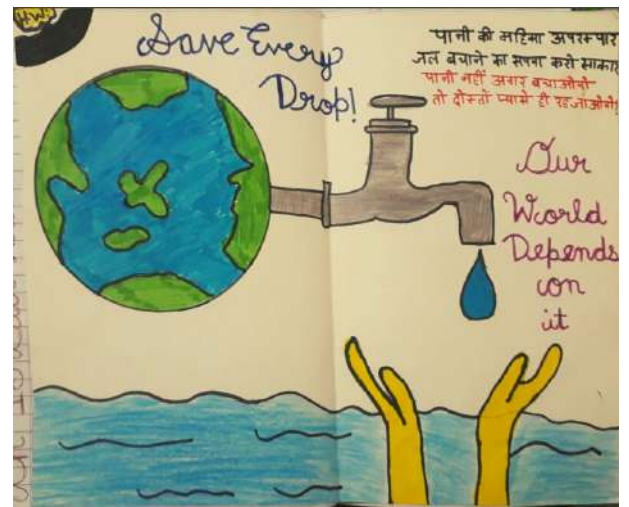 H.W.
Save Every
Drop!
पानी की महिमा अपरम्पार
जल बचाने का सपना करो साकार
पानी नहीं अगर बचाओगे
तो दोस्तों प्यासे ही रह जाओगे!
Our
World
Depends
on
it